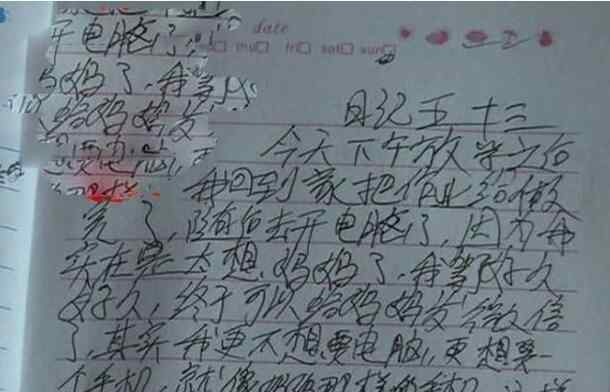 date
thu fri sat sun
开电脑了,
妈妈了,我等
给妈妈发
日记五十三
今天下午放学之后
我回到家把作业给做
完了,随后去开电脑了,因为我
实在是太想妈妈了,我等了好久
好久,终于可以给妈妈发微信
了,其实我更不想要电脑,更想要一
个手机,就像